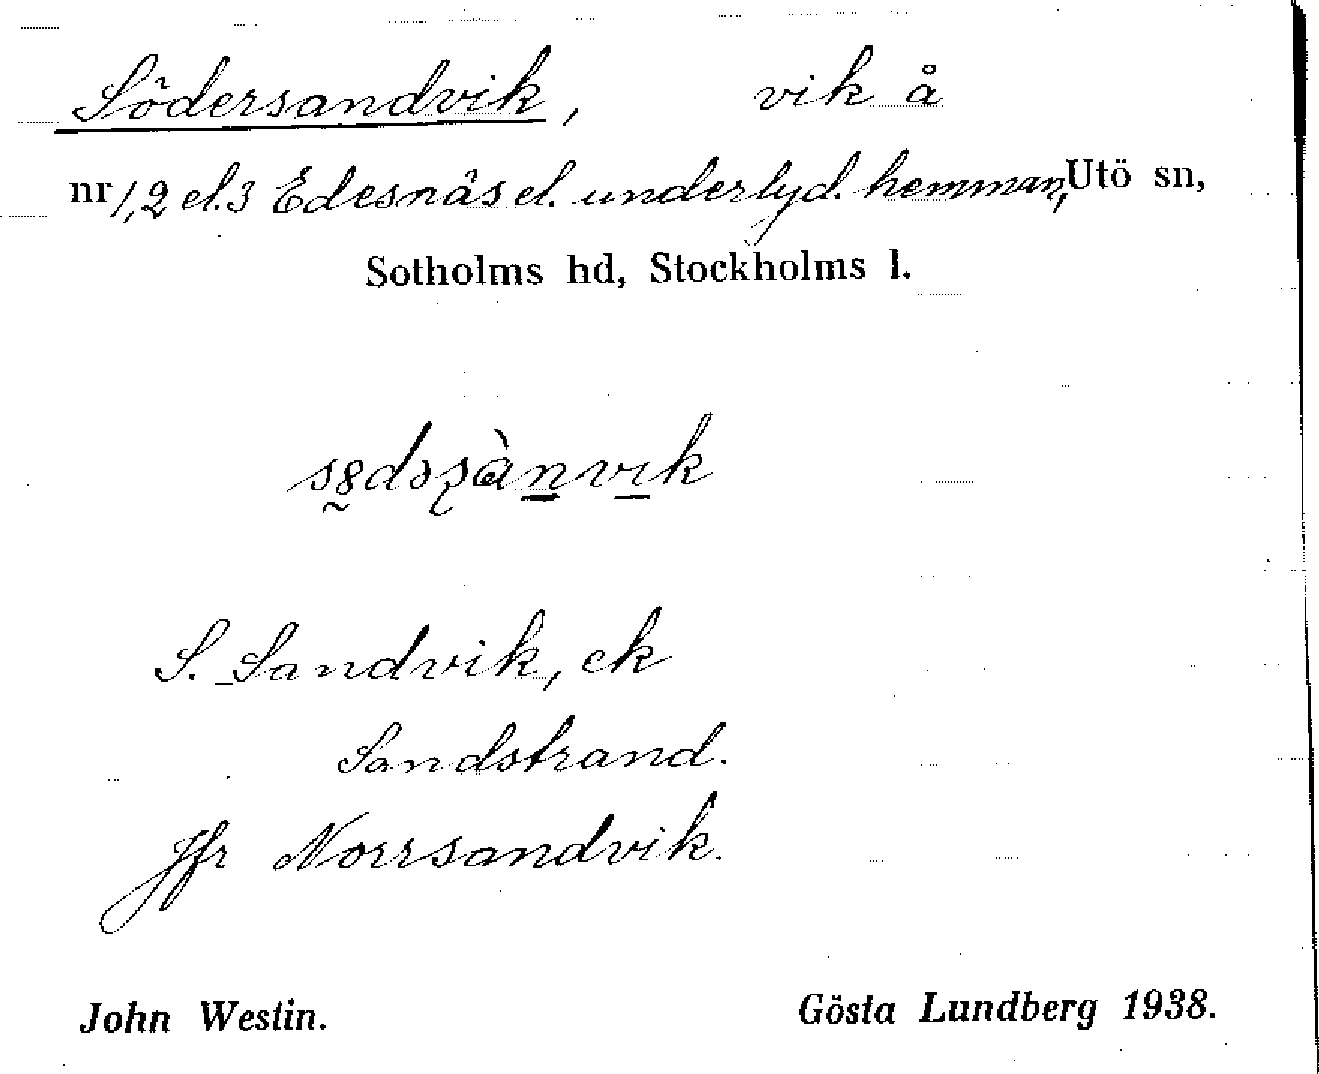 Södersandvik, vik å
nr 1, 2 el. 3 Edesnäs el. underlyd. hemman, Utö sn,
Sotholms hd, Stockholms l.
S. Sandvik, ek
Sandstrand.
Jfr Norrsandvik.
John Westin. Gösta Lundberg 1938.